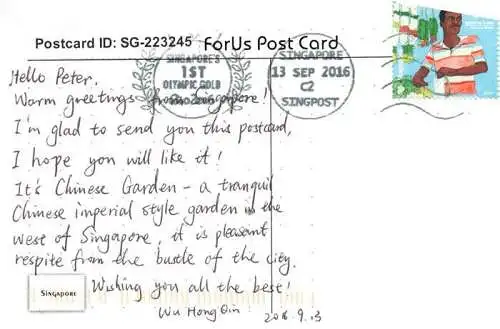 Postcard ID: SG-223245 ForUs Post Card
SINGAPORE'S
1ST
OLYMPIC GOLD
SINGAPORE
13 SEP 2016
C2
SINGPOST
Hello Peter,
Warm greetings from Singapore!
I'm glad to send you this postcard,
I hope you will like it!
It's Chinese Garden - a tranquil
Chinese imperial style garden in the
west of Singapore, it is pleasant
respite from the bustle of the city.
Wishing you all the best!
SINGAPORE
Wu Hong Qin
2016.9.13